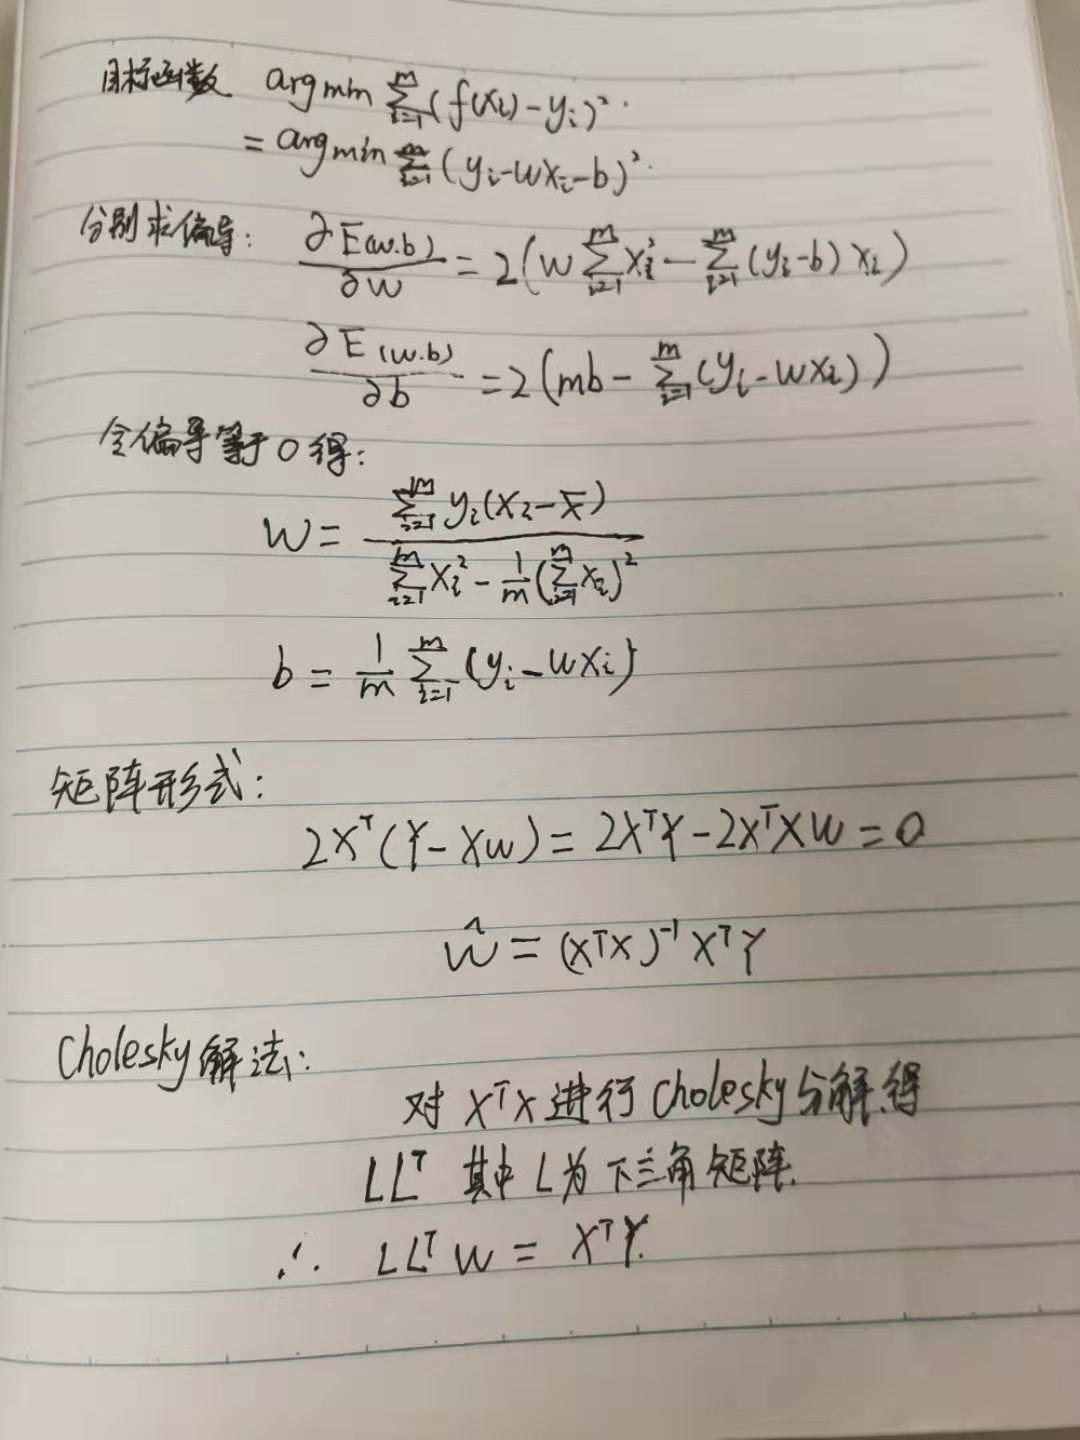 目标函数 argmin ∑_{i=1}^{m} (f(x_i) - y_i)².
= argmin ∑_{i=1}^{m} (y_i - wx_i - b)².
分别求偏导: ∂E(w.b)/∂w = 2(w ∑_{i=1}^{m} x_i² - ∑_{i=1}^{m} (y_i - b) x_i)
∂E(w.b)/∂b = 2(mb - ∑_{i=1}^{m} (y_i - wx_i))
令偏导等于0得:
w = \frac{∑_{i=1}^{m} y_i(x_i - x̄)}{∑_{i=1}^{m} x_i² - \frac{1}{m}(∑_{i=1}^{m} x_i)²}
b = \frac{1}{m} ∑_{i=1}^{m} (y_i - wx_i)
矩阵形式:
2X^T(Y - Xw) = 2X^TY - 2X^TXw = 0
ŵ = (X^TX)^{-1} X^TY
Cholesky解法:
对 X^TX 进行 Cholesky分解.得
LL^T 其中 L为下三角矩阵.
∴ LL^T w = X^TY.